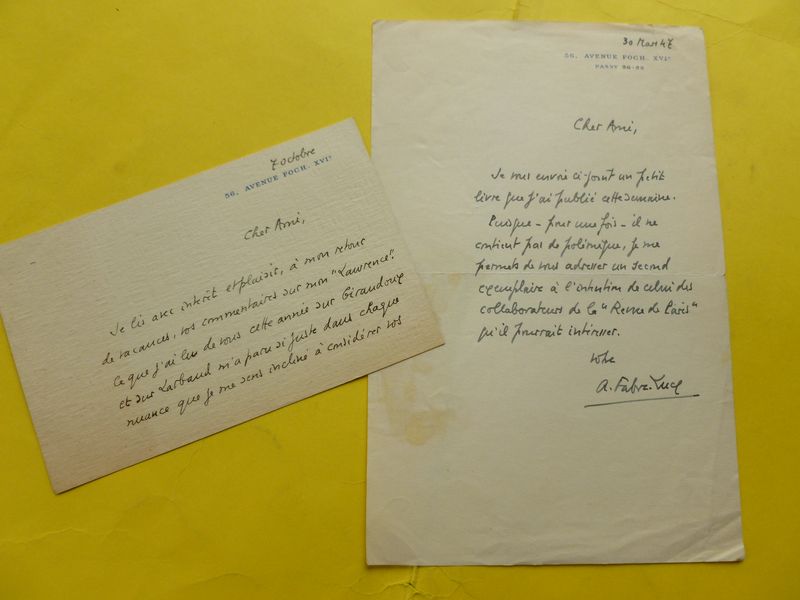 7 Octobre
56, AVENUE FOCH. XVIᵉ
Cher Ami,
Je lis avec intérêt et plaisir, à mon retour
de vacances, vos commentaires sur mon "Lawrence".
Ce que j'ai lu de vous cette année sur Giraudoux
et sur Larbaud m'a paru si juste dans chaque
nuance que je me sens incliné à considérer vos
30 Mars 47
56, AVENUE FOCH. XVIᵉ
PASSY
Cher Ami,
Je vous envoie ci-joint un petit
livre que j'ai publié cette semaine.
Puisque - pour une fois - il ne
contient pas de polémique, je me
permets de vous adresser un second
exemplaire à l'intention de celui des
collaborateurs de la "Revue de Paris"
qu'il pourrait intéresser.
Vôtre
A. Fabre-Luce